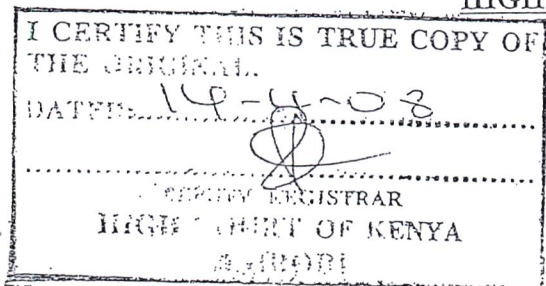 HIGH
I CERTIFY THIS IS TRUE COPY OF
THE ORIGINAL.
DATED: 14-4-08
REGISTRAR
HIGH COURT OF KENYA
NAIROBI